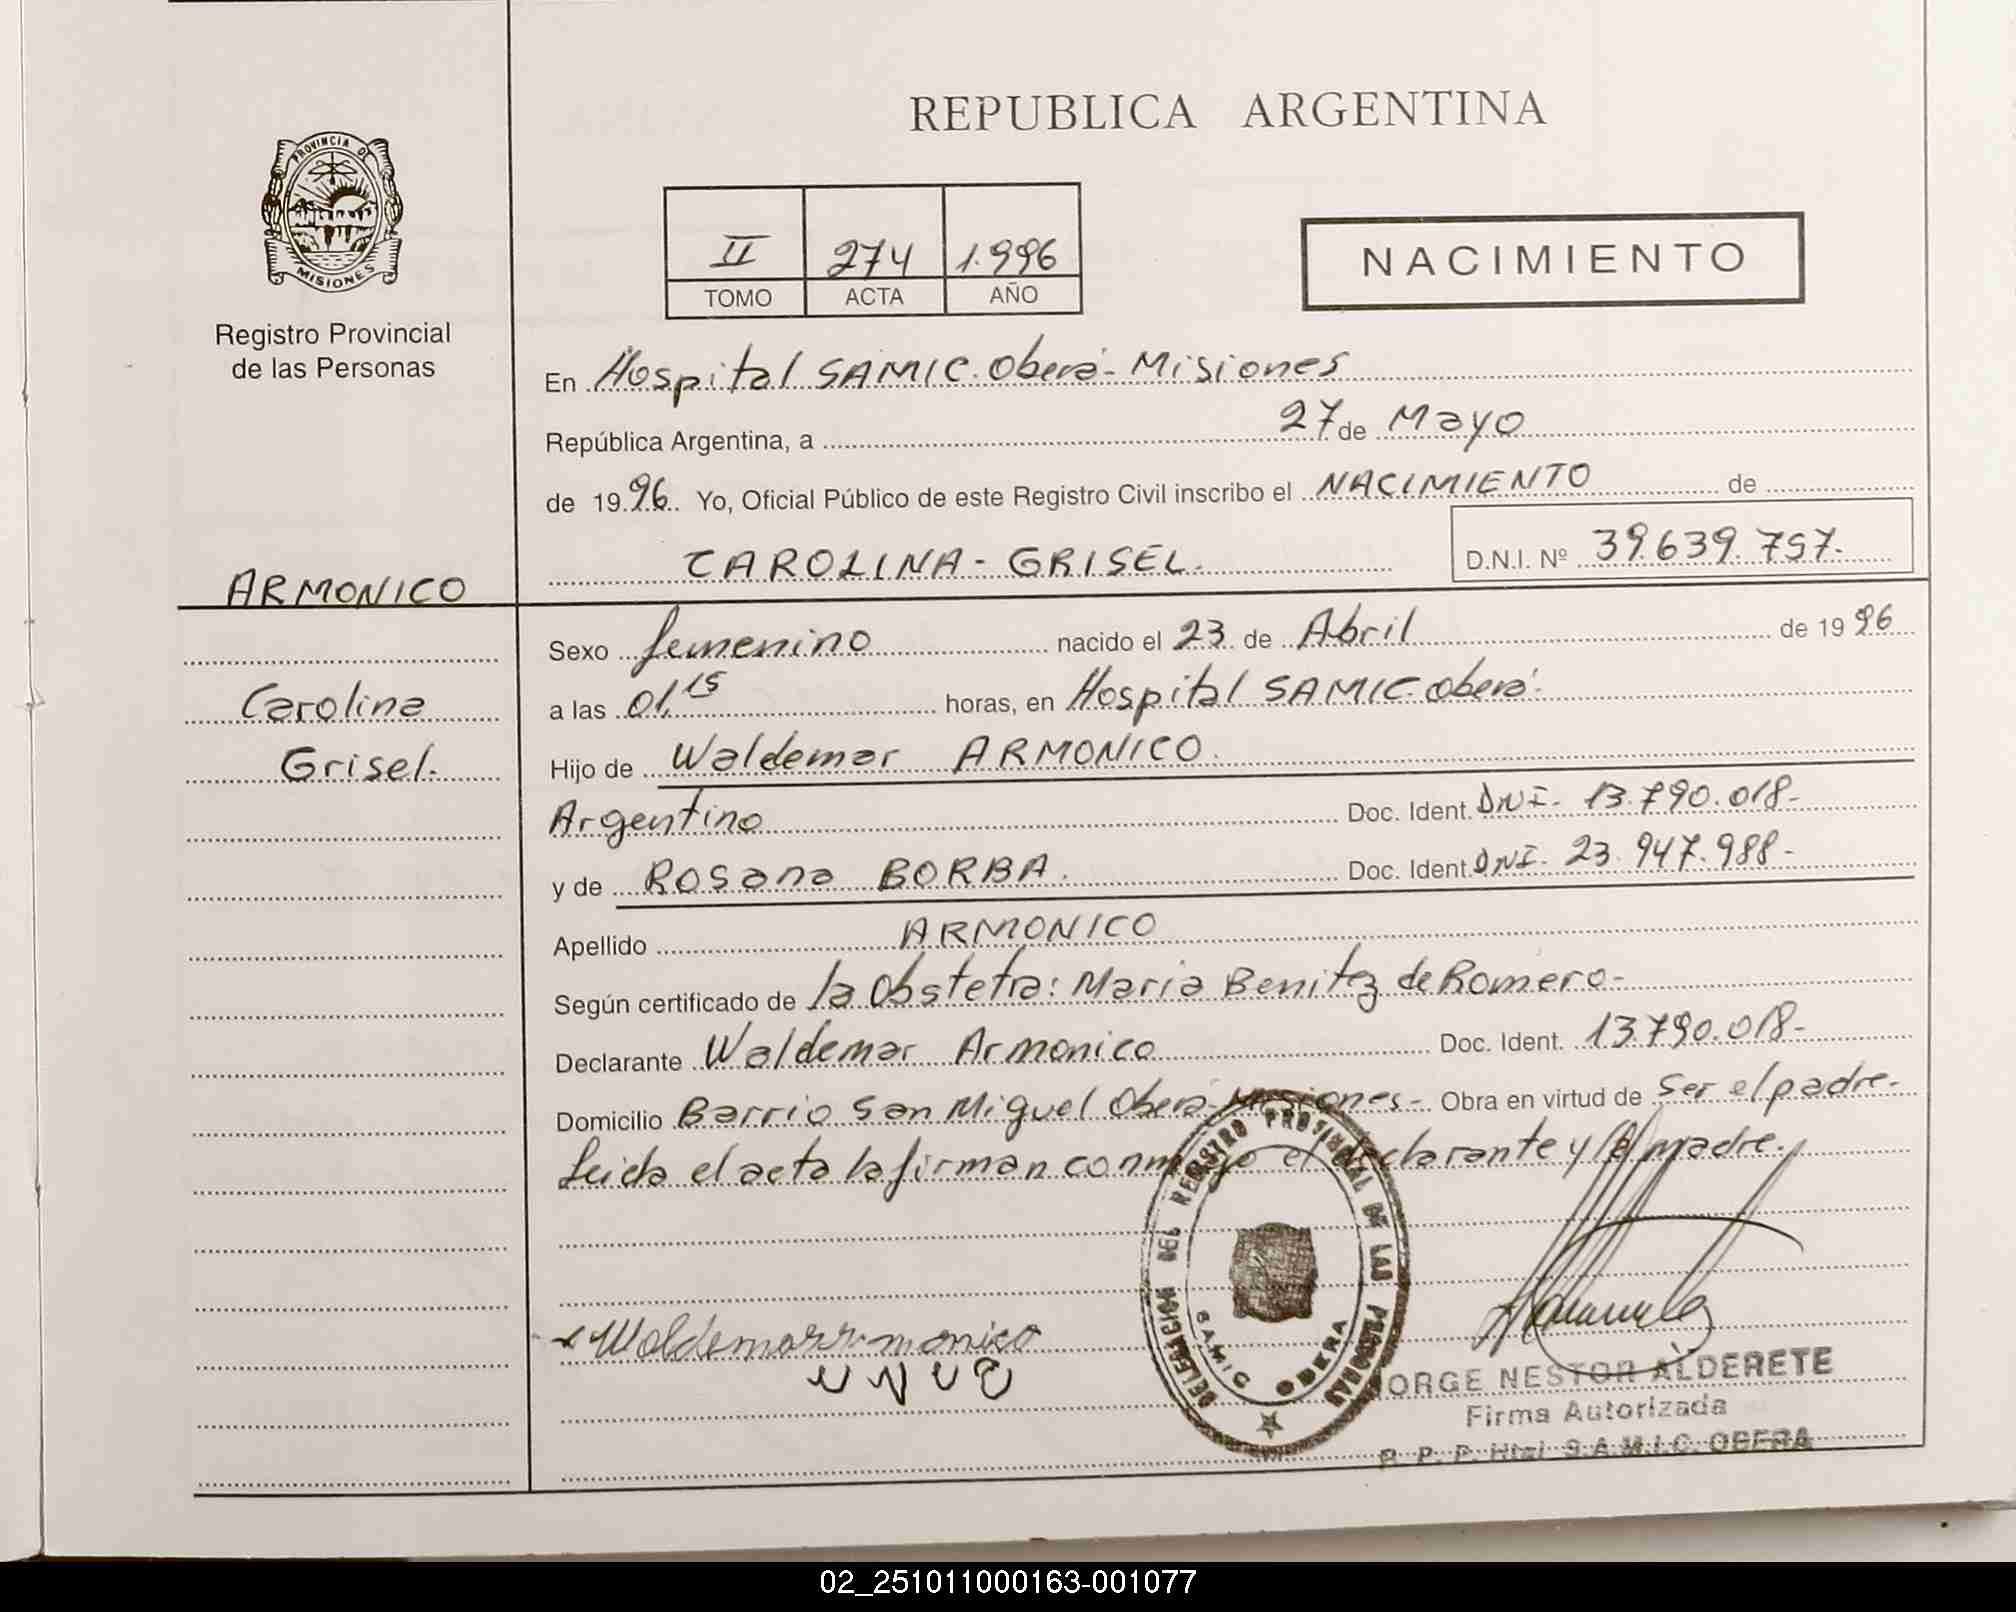 REPUBLICA ARGENTINA
PROVINCIA DE
MISIONES
Registro Provincial
de las Personas
II 274 1.996
TOMO ACTA AÑO
NACIMIENTO
En Hospital SAMIC. Oberá - Misiones
República Argentina, a 27 de Mayo
de 1996. Yo, Oficial Público de este Registro Civil inscribo el NACIMIENTO de
CAROLINA - GRISEL. D.N.I. Nº 39.639.757.-
ARMONICO
Carolina
Grisel.
Sexo femenino nacido el 23 de Abril de 1996
a las 01,15 horas, en Hospital SAMIC - Oberá -
Hijo de Waldemar ARMONICO.
Argentino Doc. Ident. DNI- 13.790.018-
y de Rosana BORBA. Doc. Ident. DNI- 23.947.988-
Apellido ARMONICO
Según certificado de la Obstetra: Maria Benitez de Romero-
Declarante Waldemar Armonico Doc. Ident. 13.790.018-
Domicilio Barrio San Miguel Oberá - Misiones- Obra en virtud de ser el padre.
Leida el acta la firman conmigo el declarante y la madre.
DELEGACION DEL REGISTRO PROVINCIAL DE LAS PERSONAS
SAMIC OBERA
JORGE NESTOR ALDERETE
Firma Autorizada
R. P. P. Htal S.A.M.I.C. OBERA
02_251011000163-001077